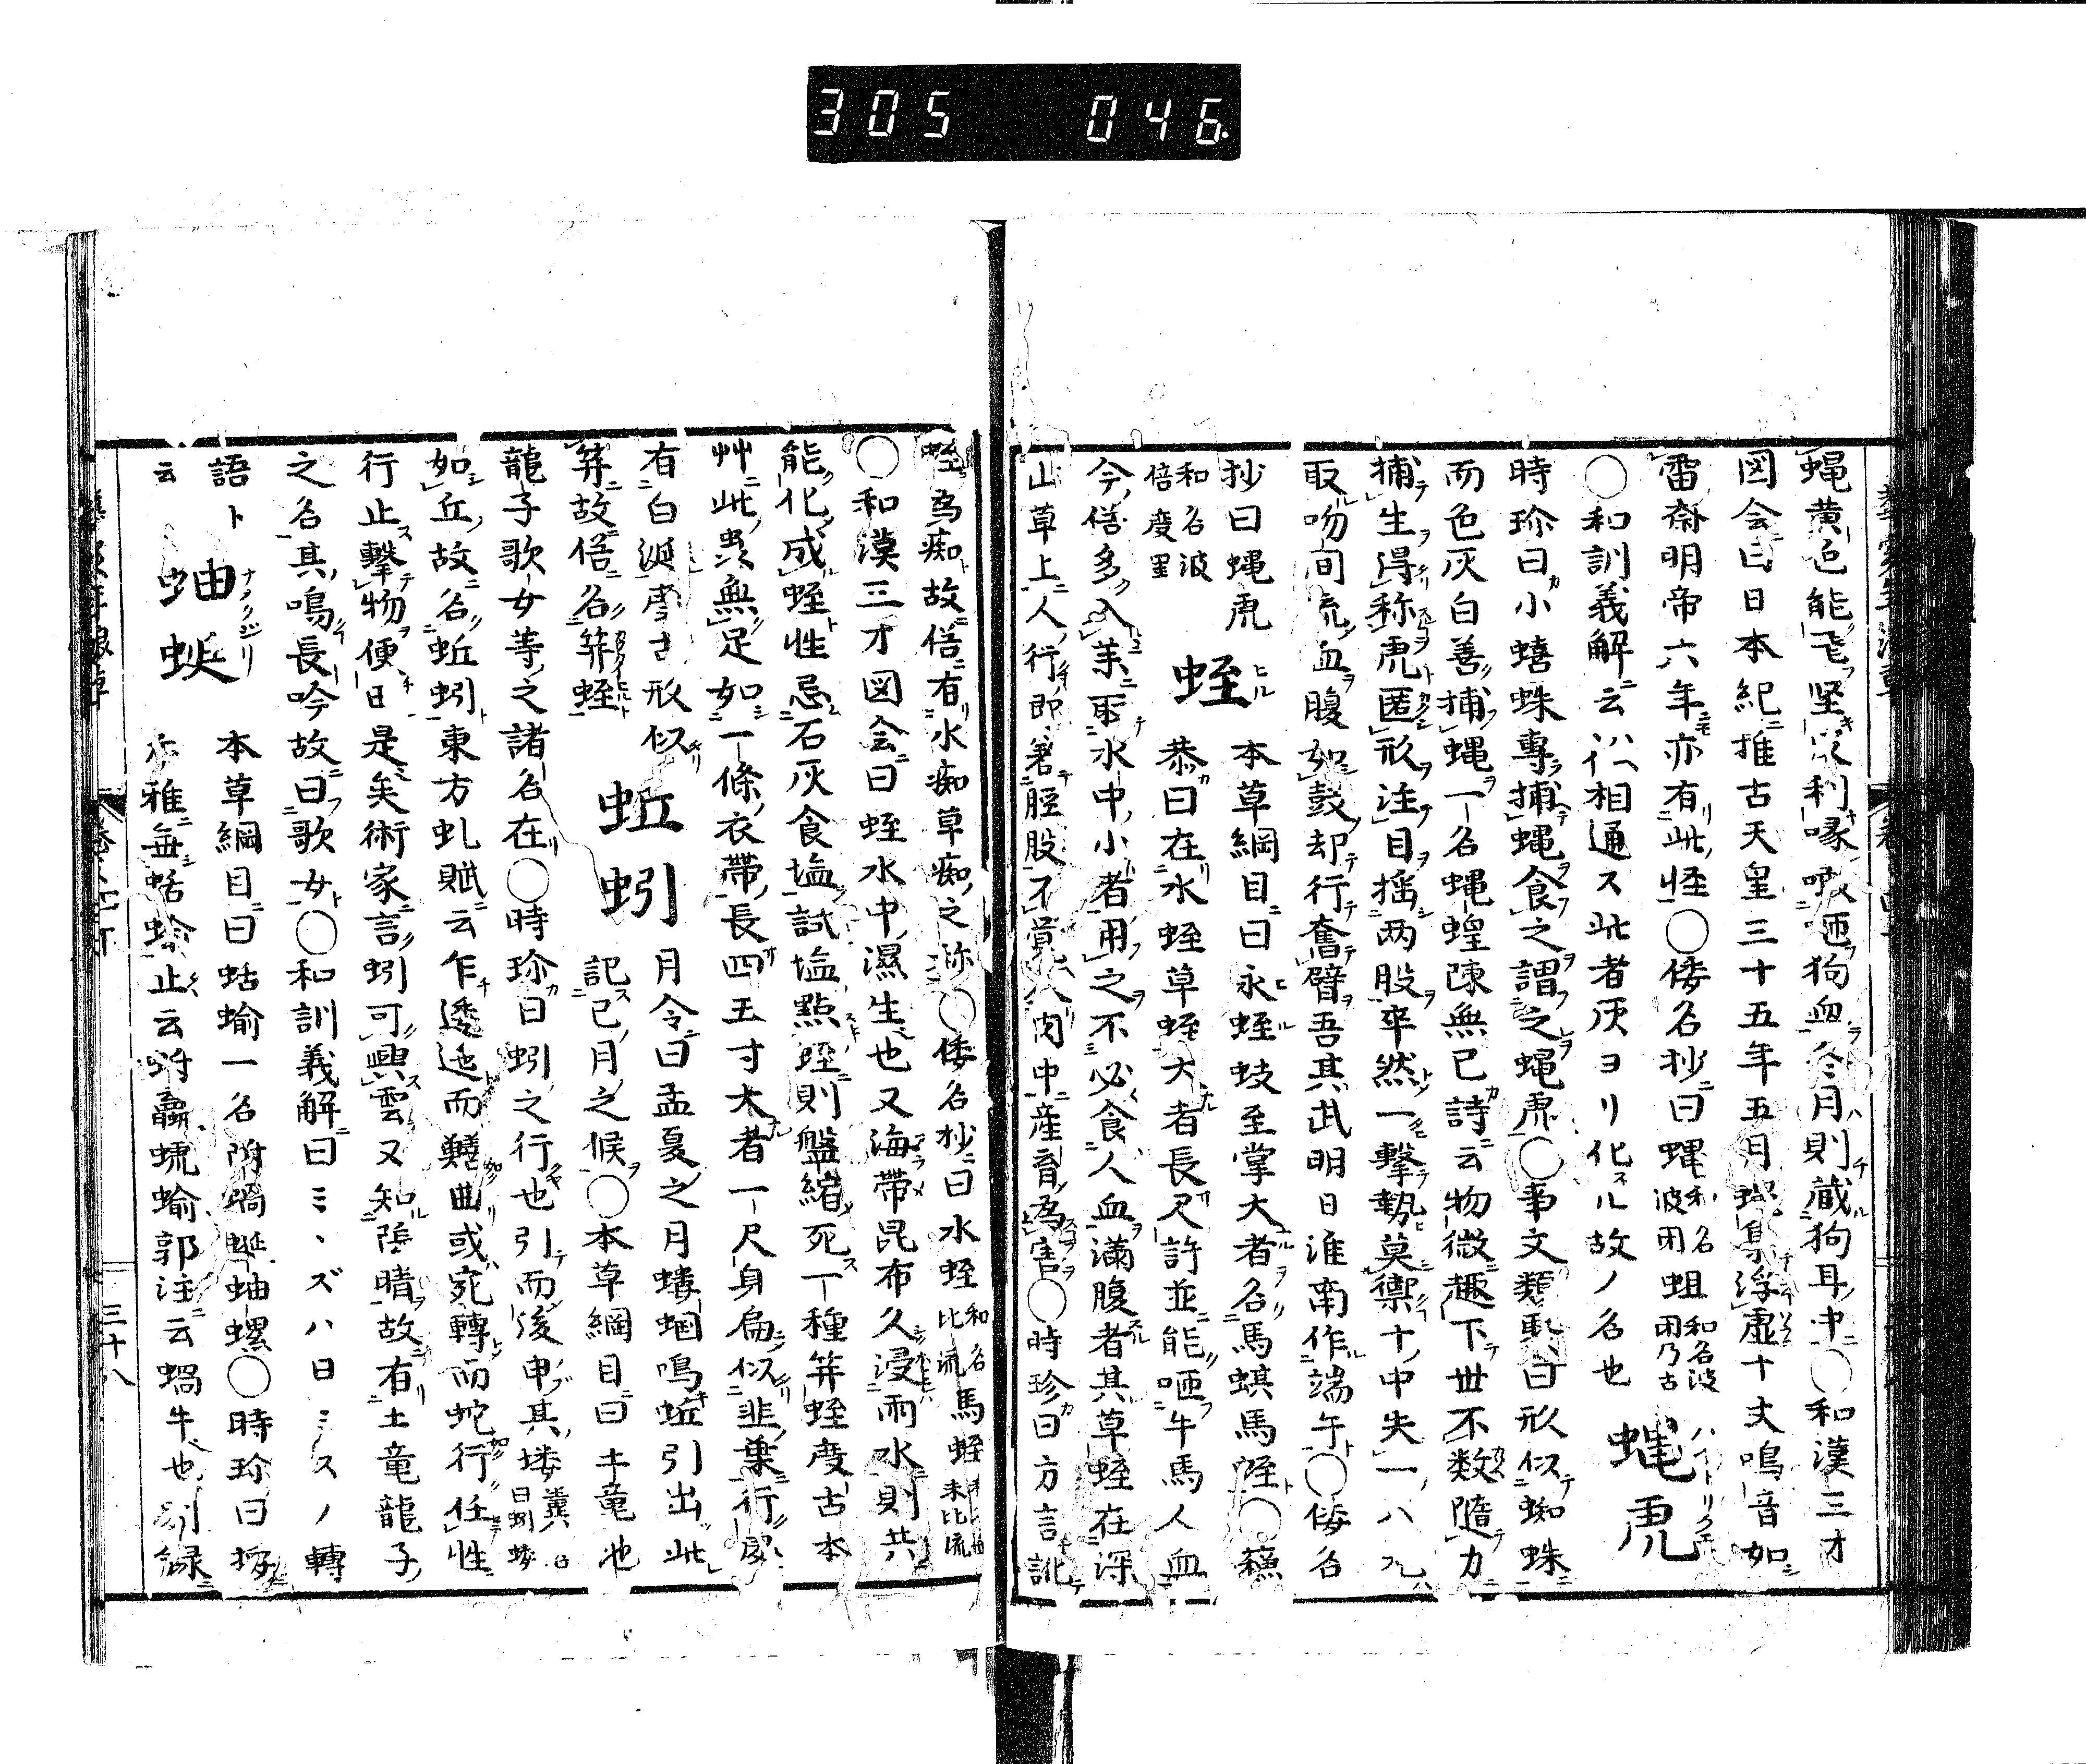 305 046
蝿黄色能飛堅皮利喙噉咂狗血冬月則蔵狗耳中〇和漢三才
図会曰日本紀推古天皇三十五年五月蝿集浮虚十丈鳴音如
雷斎明帝六年亦有此怪〇倭名抄曰蝿和名波閇蛆和名波閇乃古
〇和訓義解云ハイ相通ス此者灰ヨリ化スル故ノ名也 蝿虎ハイトリクモ
時珍曰小蟢蛛專捕蝿食之謂之蝿虎〇事文類聚曰形似蜘蛛
而色灰白善捕蝿一名蝿蝗陳無已詩云物微趣下世不数隨力
捕生得称虎匿形注目揺两股卒然一擊勢莫禦十中失一八九
取吻间流血腹如鼓却行奮臂吾其武明日淮南作端午〇倭名
抄曰蝿虎和名波倍度里 蛭ヒル 本草綱目曰水蛭蚑至掌大者名馬蜞馬蛭〇蘇
恭曰在水蛭草蛭大者長尺許並能咂牛馬人血
今俗多入薬取水中小者用之不必食人血滿腹者其草蛭在深
山草上人行即著脛股不覚入肉中産育為害〇時珍曰方言訛
蛭為痴故俗有水痴草痴之称〇倭名抄曰水蛭和名比流馬蛭
〇和漢三才図会曰蛭水中濕生也又海帶昆布久浸雨水則共
能化成蛭性忌石灰食塩試塩點蛭則盤縮死一種笄蛭度古本
艸此虫無足如一條衣帶長四五寸大者一尺身扁似韮葉行処
有白涎度古形似
笄故俗名笄蛭 蚯蚓 月令曰孟夏之月螻蝈鳴蚯引出此
記已月之候〇本草綱目曰土竜地
龍子歌女等之諸名在〇時珍曰蚓之行也引而後申其塿
如丘故名蚯蚓東方虬賦云乍逶迤而鱔曲或宛轉而蛇行任性
行止擊物便曰是矣術家言蚓可興雲又知陰晴故有土竜龍子
之名其鳴長吟故曰歌女〇和訓義解曰ミヽズハ日ミスノ轉
語ト云 蛐蜒ナメクジリ 本草綱目曰蛞蝓一名附蝸蜒蛐螺〇時珍曰按
尓雅無蛞蝓止云蚹蠃螔蝓郭注云蝸牛也別録
三十八